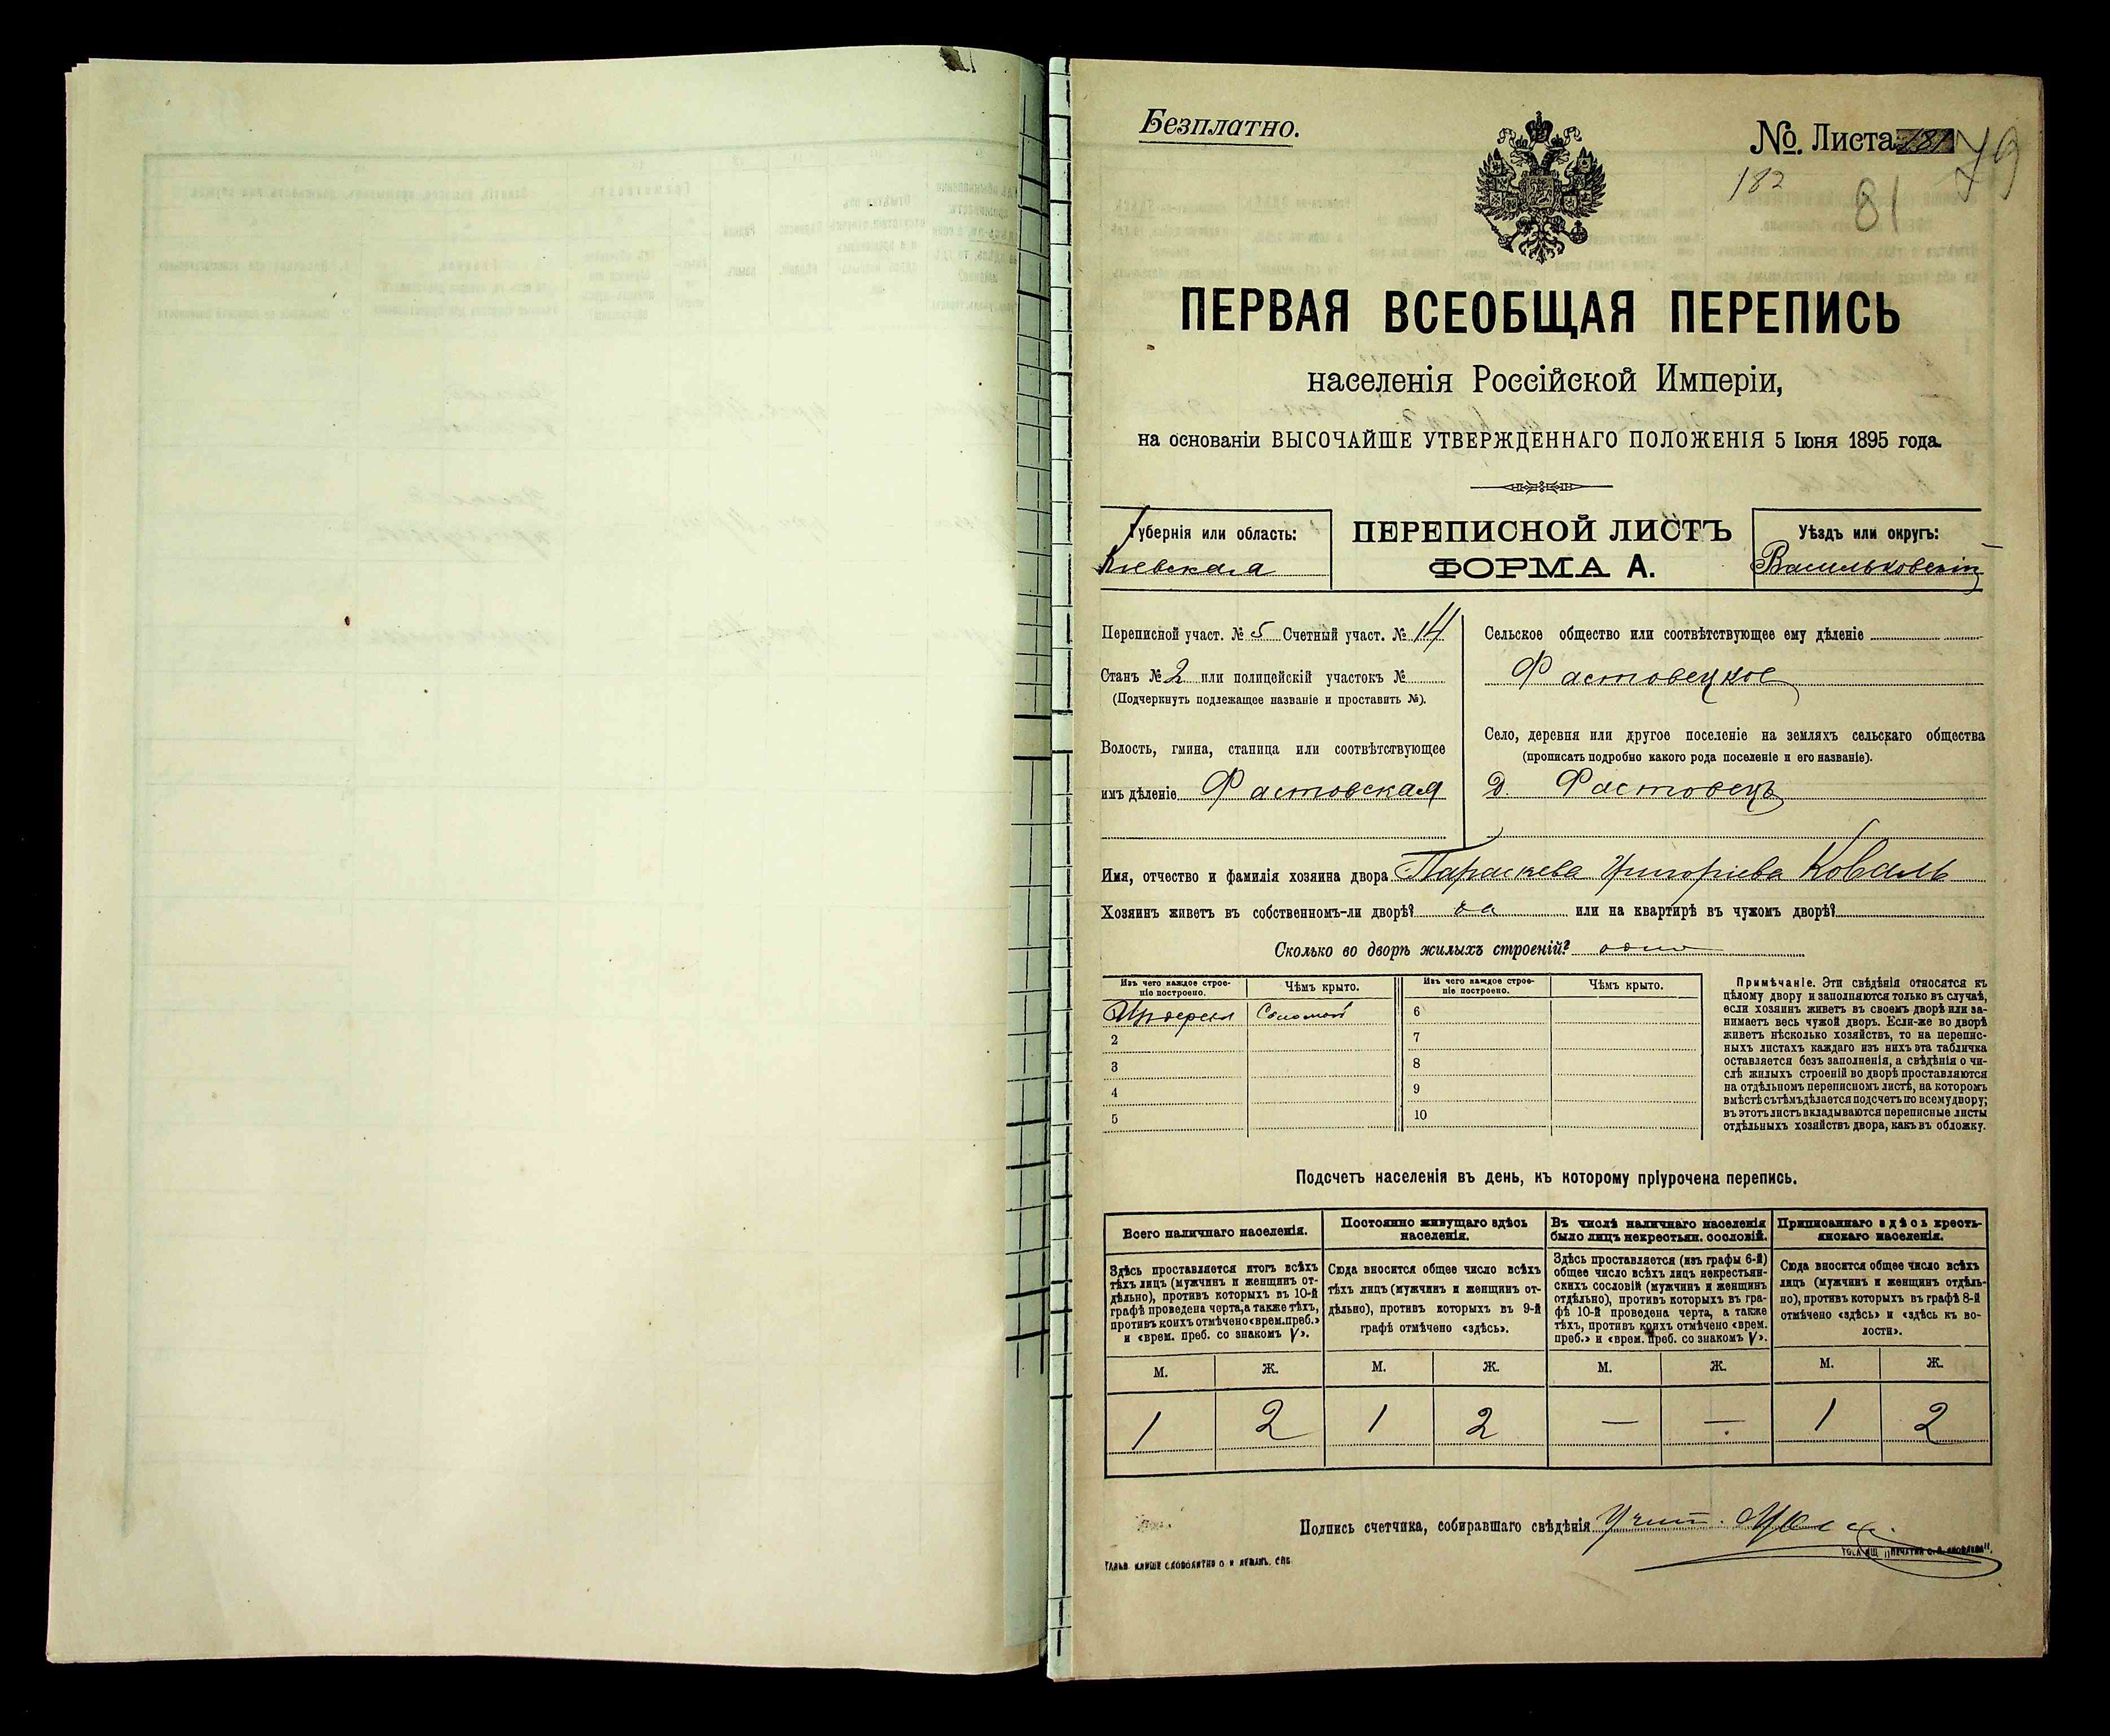 Безплатно.
№ Листа 181
79
182
81
ПЕРВАЯ ВСЕОБЩАЯ ПЕРЕПИСЬ
населенія Россійской Имперіи,
на основаніи ВЫСОЧАЙШЕ УТВЕРЖДЕННАГО ПОЛОЖЕНІЯ 5 Іюня 1895 года.
Губернія или область:
Кіевская
ПЕРЕПИСНОЙ ЛИСТЪ
ФОРМА А.
Уѣздъ или округъ:
Васильковскій
Переписной участ. № 5 Счетный участ. № 14
Станъ № 2 или полицейскій участокъ №
(Подчеркнуть подлежащее названіе и проставить №).
Волость, гмина, станица или соотвѣтствующее
имъ дѣленіе Фастовская
Сельское общество или соотвѣтствующее ему дѣленіе
Фастовецкое
Село, деревня или другое поселеніе на земляхъ сельскаго общества
(прописать подробно какого рода поселеніе и его названіе).
Д. Фастовецъ
Имя, отчество и фамилія хозяина двора Параскева Григоріева Коваль
Хозяинъ живетъ въ собственномъ-ли дворѣ? да или на квартирѣ въ чужомъ дворѣ?
Сколько во дворѣ жилыхъ строеній? одно
Изъ чего каждое строе-
ніе построено.
Чѣмъ крыто.
Изъ чего каждое строе-
ніе построено.
Чѣмъ крыто.
Соломой
6
2
7
3
8
4
9
5
10
Примѣчаніе. Эти свѣдѣнія относятся къ
цѣлому двору и заполняются только въ случаѣ,
если хозяинъ живетъ въ своемъ дворѣ или за-
нимаетъ весь чужой дворъ. Если-же во дворѣ
живетъ нѣсколько хозяйствъ, то на перепис-
ныхъ листахъ каждаго изъ нихъ эта табличка
оставляется безъ заполненія, а свѣдѣнія о чи-
слѣ жилыхъ строеній во дворѣ проставляются
на отдѣльномъ переписномъ листѣ, на которомъ
вмѣстѣ съ тѣмъ дѣлается подсчетъ по всему двору;
въ этотъ листъ вкладываются переписные листы
отдѣльныхъ хозяйствъ двора, какъ въ обложку.
Подсчетъ населенія въ день, къ которому пріурочена перепись.
Всего наличнаго населенія.
Здѣсь проставляется итогъ всѣхъ
тѣхъ лицъ (мужчинъ и женщинъ от-
дѣльно), противъ которыхъ въ 10-й
графѣ проведена черта, а также тѣхъ,
противъ коихъ отмѣчено «врем. преб.»
и «врем. преб. со знакомъ V».
Постоянно живущаго здѣсь
населенія.
Сюда вносится общее число всѣхъ
тѣхъ лицъ (мужчинъ и женщинъ от-
дѣльно), противъ которыхъ въ 9-й
графѣ отмѣчено «здѣсь».
Въ числѣ наличнаго населенія
было лицъ некрестьян. сословій.
Здѣсь проставляется (изъ графы 6-й)
общее число всѣхъ лицъ некрестьян-
скихъ сословій (мужчинъ и женщинъ
отдѣльно), противъ которыхъ въ гра-
фѣ 10-й проведена черта, а также
тѣхъ, противъ коихъ отмѣчено «врем.
преб.» и «врем. преб. со знакомъ V».
Приписаннаго здѣсь кресть-
янскаго населенія.
Сюда вносится общее число всѣхъ
лицъ (мужчинъ и женщинъ отдѣль-
но), противъ которыхъ въ графѣ 8-й
отмѣчено «здѣсь» и «здѣсь къ во-
лости».
М. Ж. М. Ж. М. Ж. М. Ж.
1 2 1 2 — — 1 2
Подпись счетчика, собиравшаго свѣдѣнія Учит.